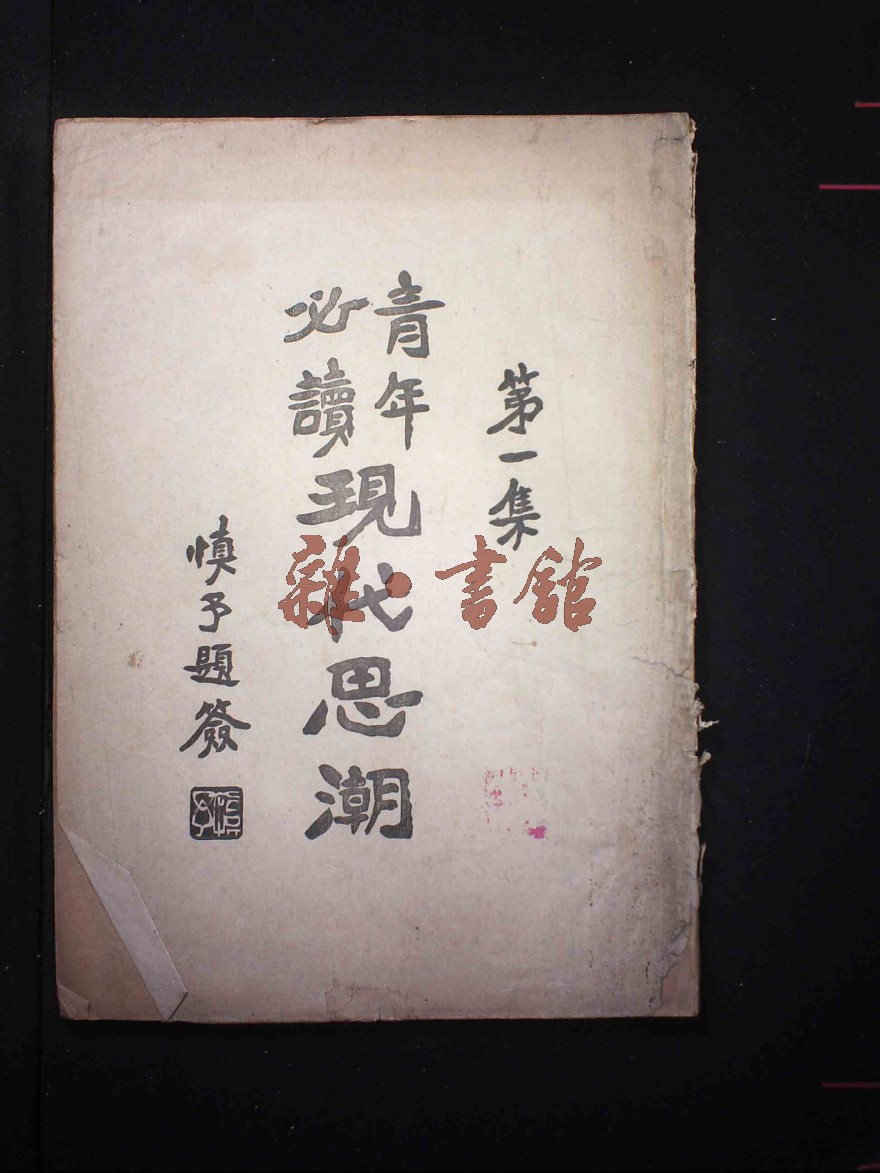 第一集
青年
必讀
現代思潮
慎予題簽
雜·書館